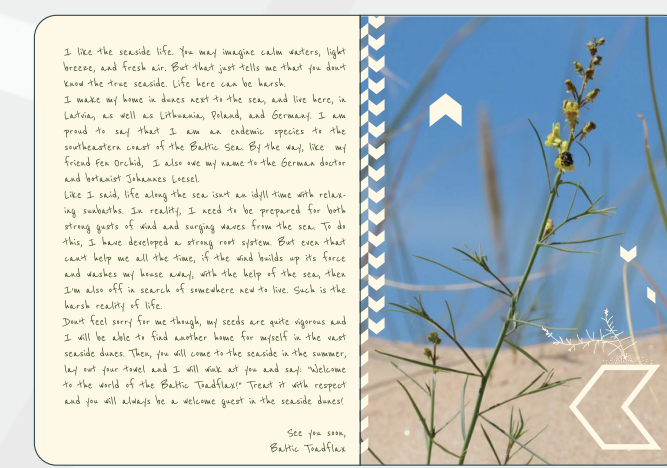 I like the seaside life. You may imagine calm waters, light
breeze, and fresh air. But that just tells me that you don't
know the true seaside. Life here can be harsh.
I make my home in dunes next to the sea, and live here, in
Latvia, as well as Lithuania, Poland, and Germany. I am
proud to say that I am an endemic species to the
southeastern coast of the Baltic Sea. By the way, like my
friend Fen Orchid, I also owe my name to the German doctor
and botanist Johannes Loesel.
Like I said, life along the sea isn't an idyll time with relax-
ing sunbaths. In reality, I need to be prepared for both
strong gusts of wind and surging waves from the sea. To do
this, I have developed a strong root system. But even that
can't help me all the time, if the wind builds up its force
and washes my house away, with the help of the sea, then
I'm also off in search of somewhere new to live. Such is the
harsh reality of life.
Don't feel sorry for me though, my seeds are quite vigorous and
I will be able to find another home for myself in the vast
seaside dunes. Then, you will come to the seaside in the summer,
lay out your towel and I will wink at you and say: "Welcome
to the world of the Baltic Toadflax!" Treat it with respect
and you will always be a welcome guest in the seaside dunes!
See you soon,
Baltic Toadflax